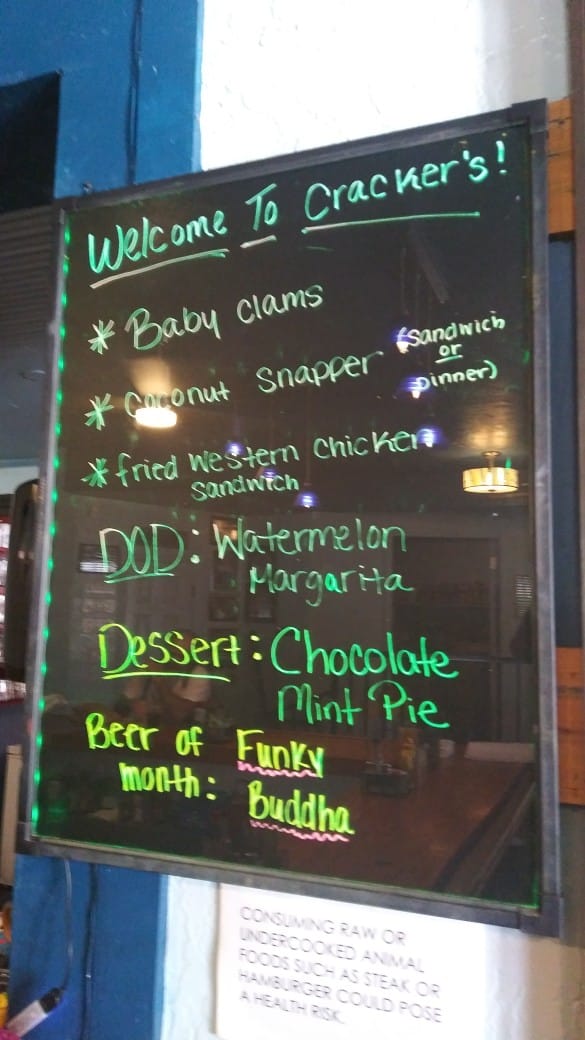 Welcome To Cracker's!
* Baby clams
* Coconut Snapper (Sandwich
or
Dinner)
* fried Western Chicken
Sandwich
DOD: Watermelon
Margarita
Dessert: Chocolate
Mint Pie
Beer of Funky
month: Buddha
CONSUMING RAW OR
UNDERCOOKED ANIMAL
FOODS SUCH AS STEAK OR
HAMBURGER COULD POSE
A HEALTH RISK.